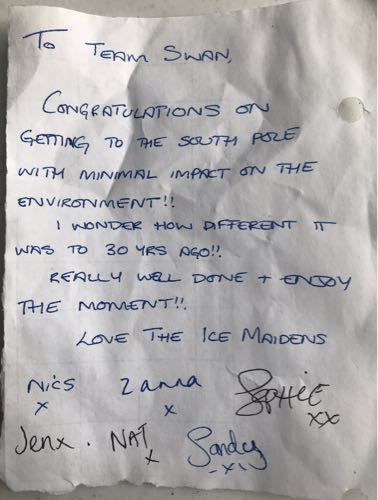 To TEAM SWAN,
CONGRATULATIONS ON
GETTING TO THE SOUTH POLE
WITH MINIMAL IMPACT ON THE
ENVIRONMENT!!
I WONDER HOW DIFFERENT IT
WAS TO 30 YRS AGO!!
REALLY WELL DONE + ENJOY
THE MOMENT!!
LOVE THE ICE MAIDENS
Nics Zanna SOPHIE
x x xx
Jenx. NAT Sandy
x x